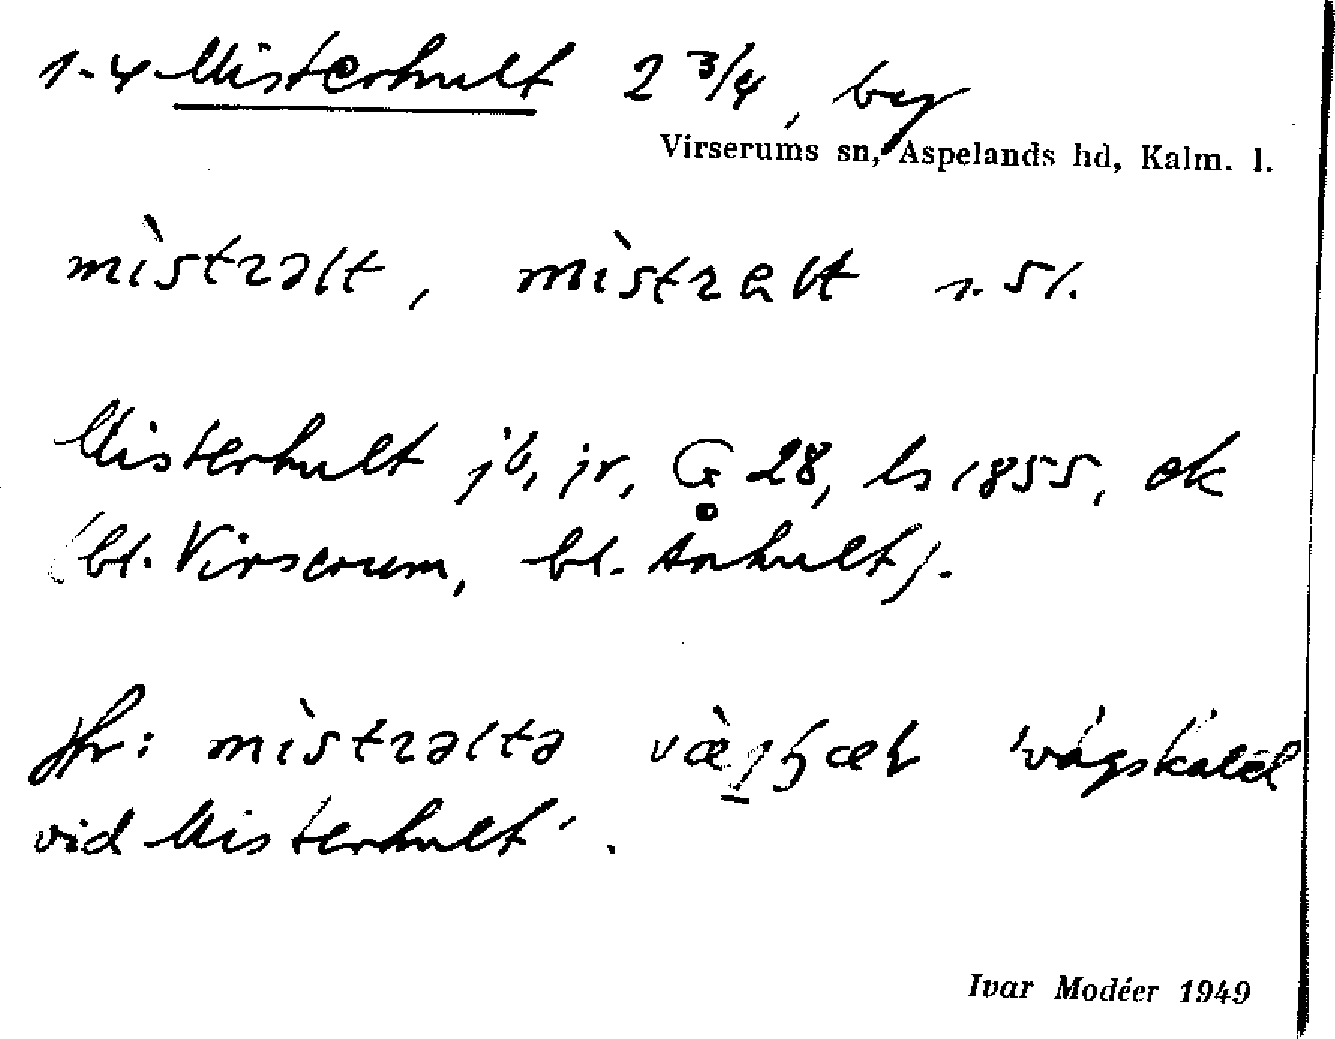 1-4 Misterhult 2 3/4, by
Virserums sn, Aspelands hd, Kalm. l.
mìstrəlt, mìstrelt 1. st.
Misterhult jb, jr, G 28, ls 1855, ek
(bl. Virserum, bl. Ånhult).
Jfr: mìstrəltə
vid Misterhult'.
Ivar Modéer 1949